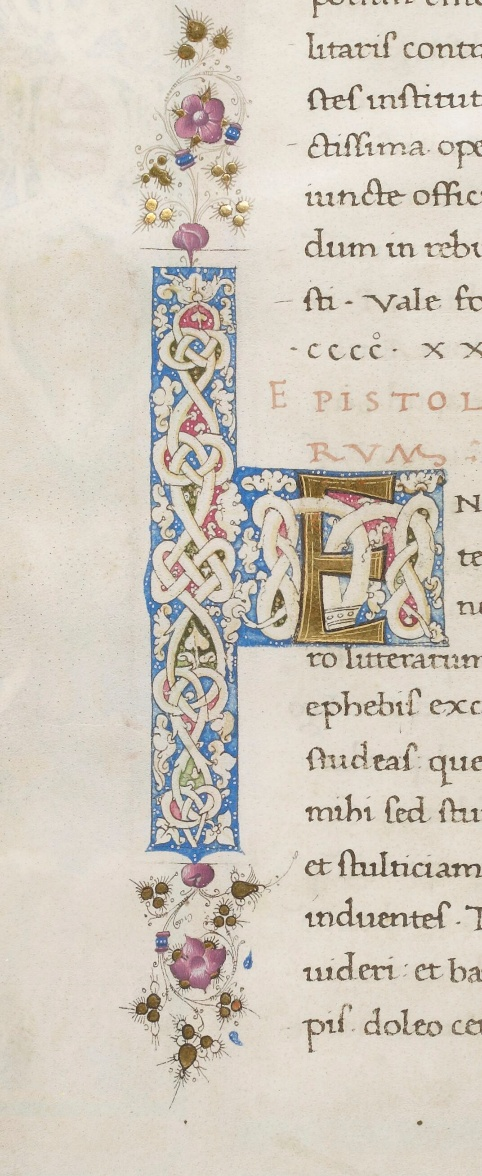 litaris contr
stes institut
ctissima. ope
iuncte offic
dum in rebu
sti. Vale fo
.cccc°. xx
EPISTOL
RVM
E N
te
ne
ro litterarum
ephebis exc
studeas: que
mihi sed stu
et stulticiam
induentes. T
uideri: et ba
pis. doleo cer